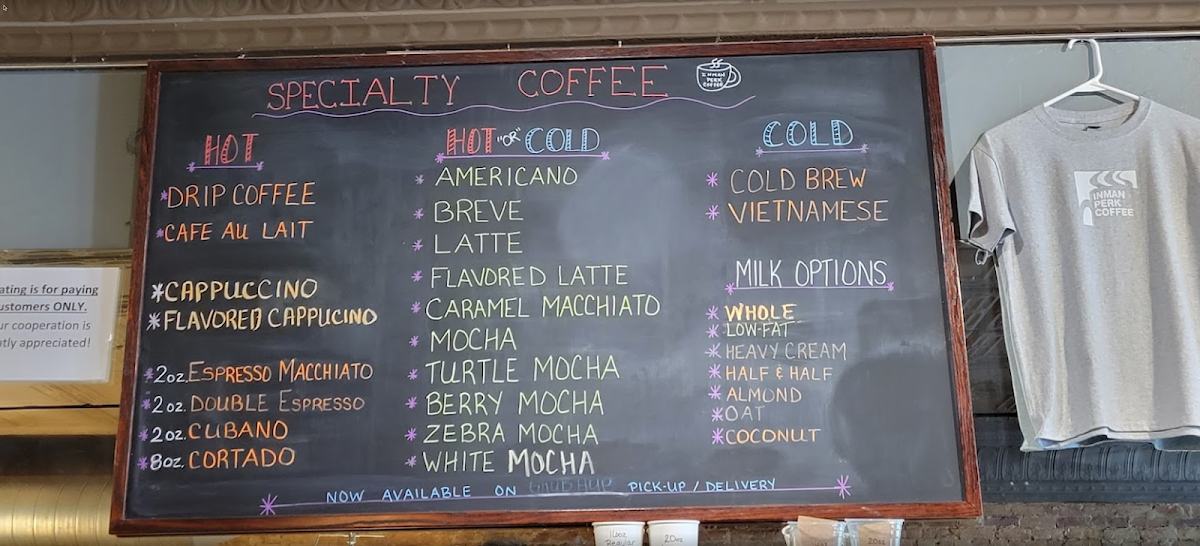 SPECIALTY COFFEE
INMAN
PERK
COFFEE
HOT
*DRIP COFFEE
*CAFE AU LAIT
*CAPPUCCINO
*FLAVORED CAPPUCINO
*2oz. ESPRESSO MACCHIATO
*2oz. DOUBLE ESPRESSO
*2oz. CUBANO
*8oz. CORTADO
HOT "OR" COLD
*AMERICANO
*BREVE
*LATTE
*FLAVORED LATTE
*CARAMEL MACCHIATO
*MOCHA
*TURTLE MOCHA
*BERRY MOCHA
*ZEBRA MOCHA
*WHITE MOCHA
COLD
*COLD BREW
*VIETNAMESE
MILK OPTIONS
*WHOLE
*LOW-FAT
*HEAVY CREAM
*HALF & HALF
*ALMOND
*OAT
*COCONUT
*NOW AVAILABLE ON GRUBHUB PICK-UP / DELIVERY*
ating is for paying
ustomers ONLY.
ur cooperation is
tly appreciated!
INMAN
PERK
COFFEE
16oz
Regular
20oz
20oz